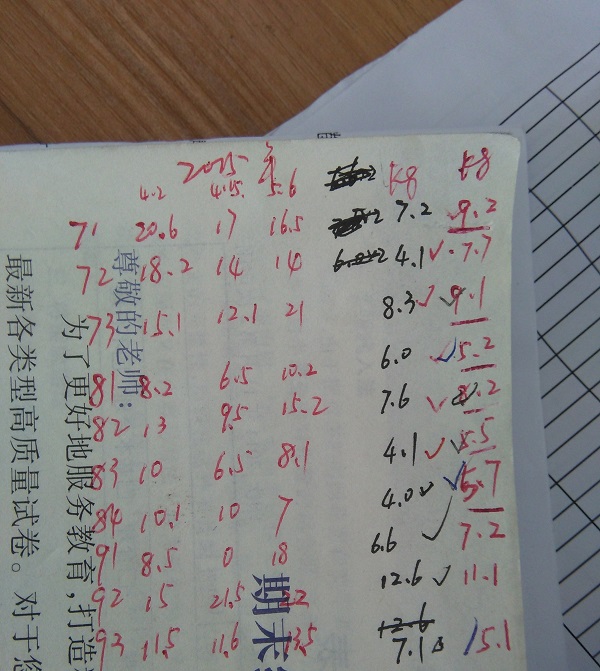 2025年
4.2 4.15. 5.6 kg kg
71 20.6 17 16.5 7.2 9.2
72 18.2 14 10 4.1 ✓ 7.7
73 15.1 12.1 21 8.3 ✓ 9.1
81 8.2 6.5 10.2 6.0 ✓ 5.2
82 13 9.5 15.2 7.6 ✓
83 10 6.5 8.1 4.1 ✓ 5.5
84 10.1 10 7 4.0 ✓ 5.7
91 8.5 0 18 6.6 ✓ 7.2
92 15 21.5 12.6 ✓ 11.1
93 11.5 11.6 7.1 15.1
期末
尊敬的老师：
为了更好地服务教育，打造
最新各类型高质量试卷。对于您